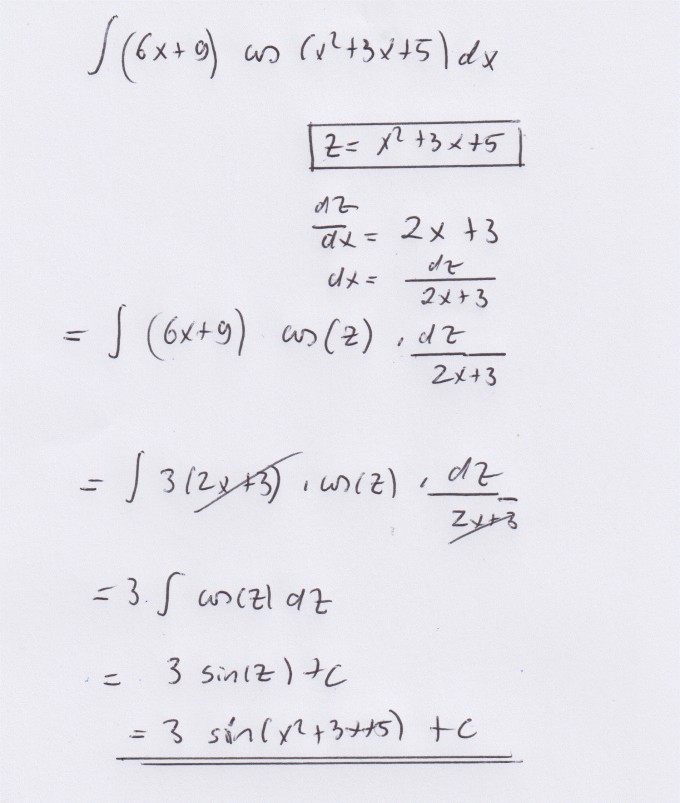 ∫ (6x+9) cos (x²+3x+5) dx
z = x²+3x+5
dz/dx = 2x+3
dx = dz/(2x+3)
= ∫ (6x+9) cos(z) · dz/(2x+3)
= ∫ 3(2x+3) · cos(z) · dz/(2x+3)
= 3·∫ cos(z) dz
= 3 sin(z) + c
= 3 sin(x²+3x+5) + c